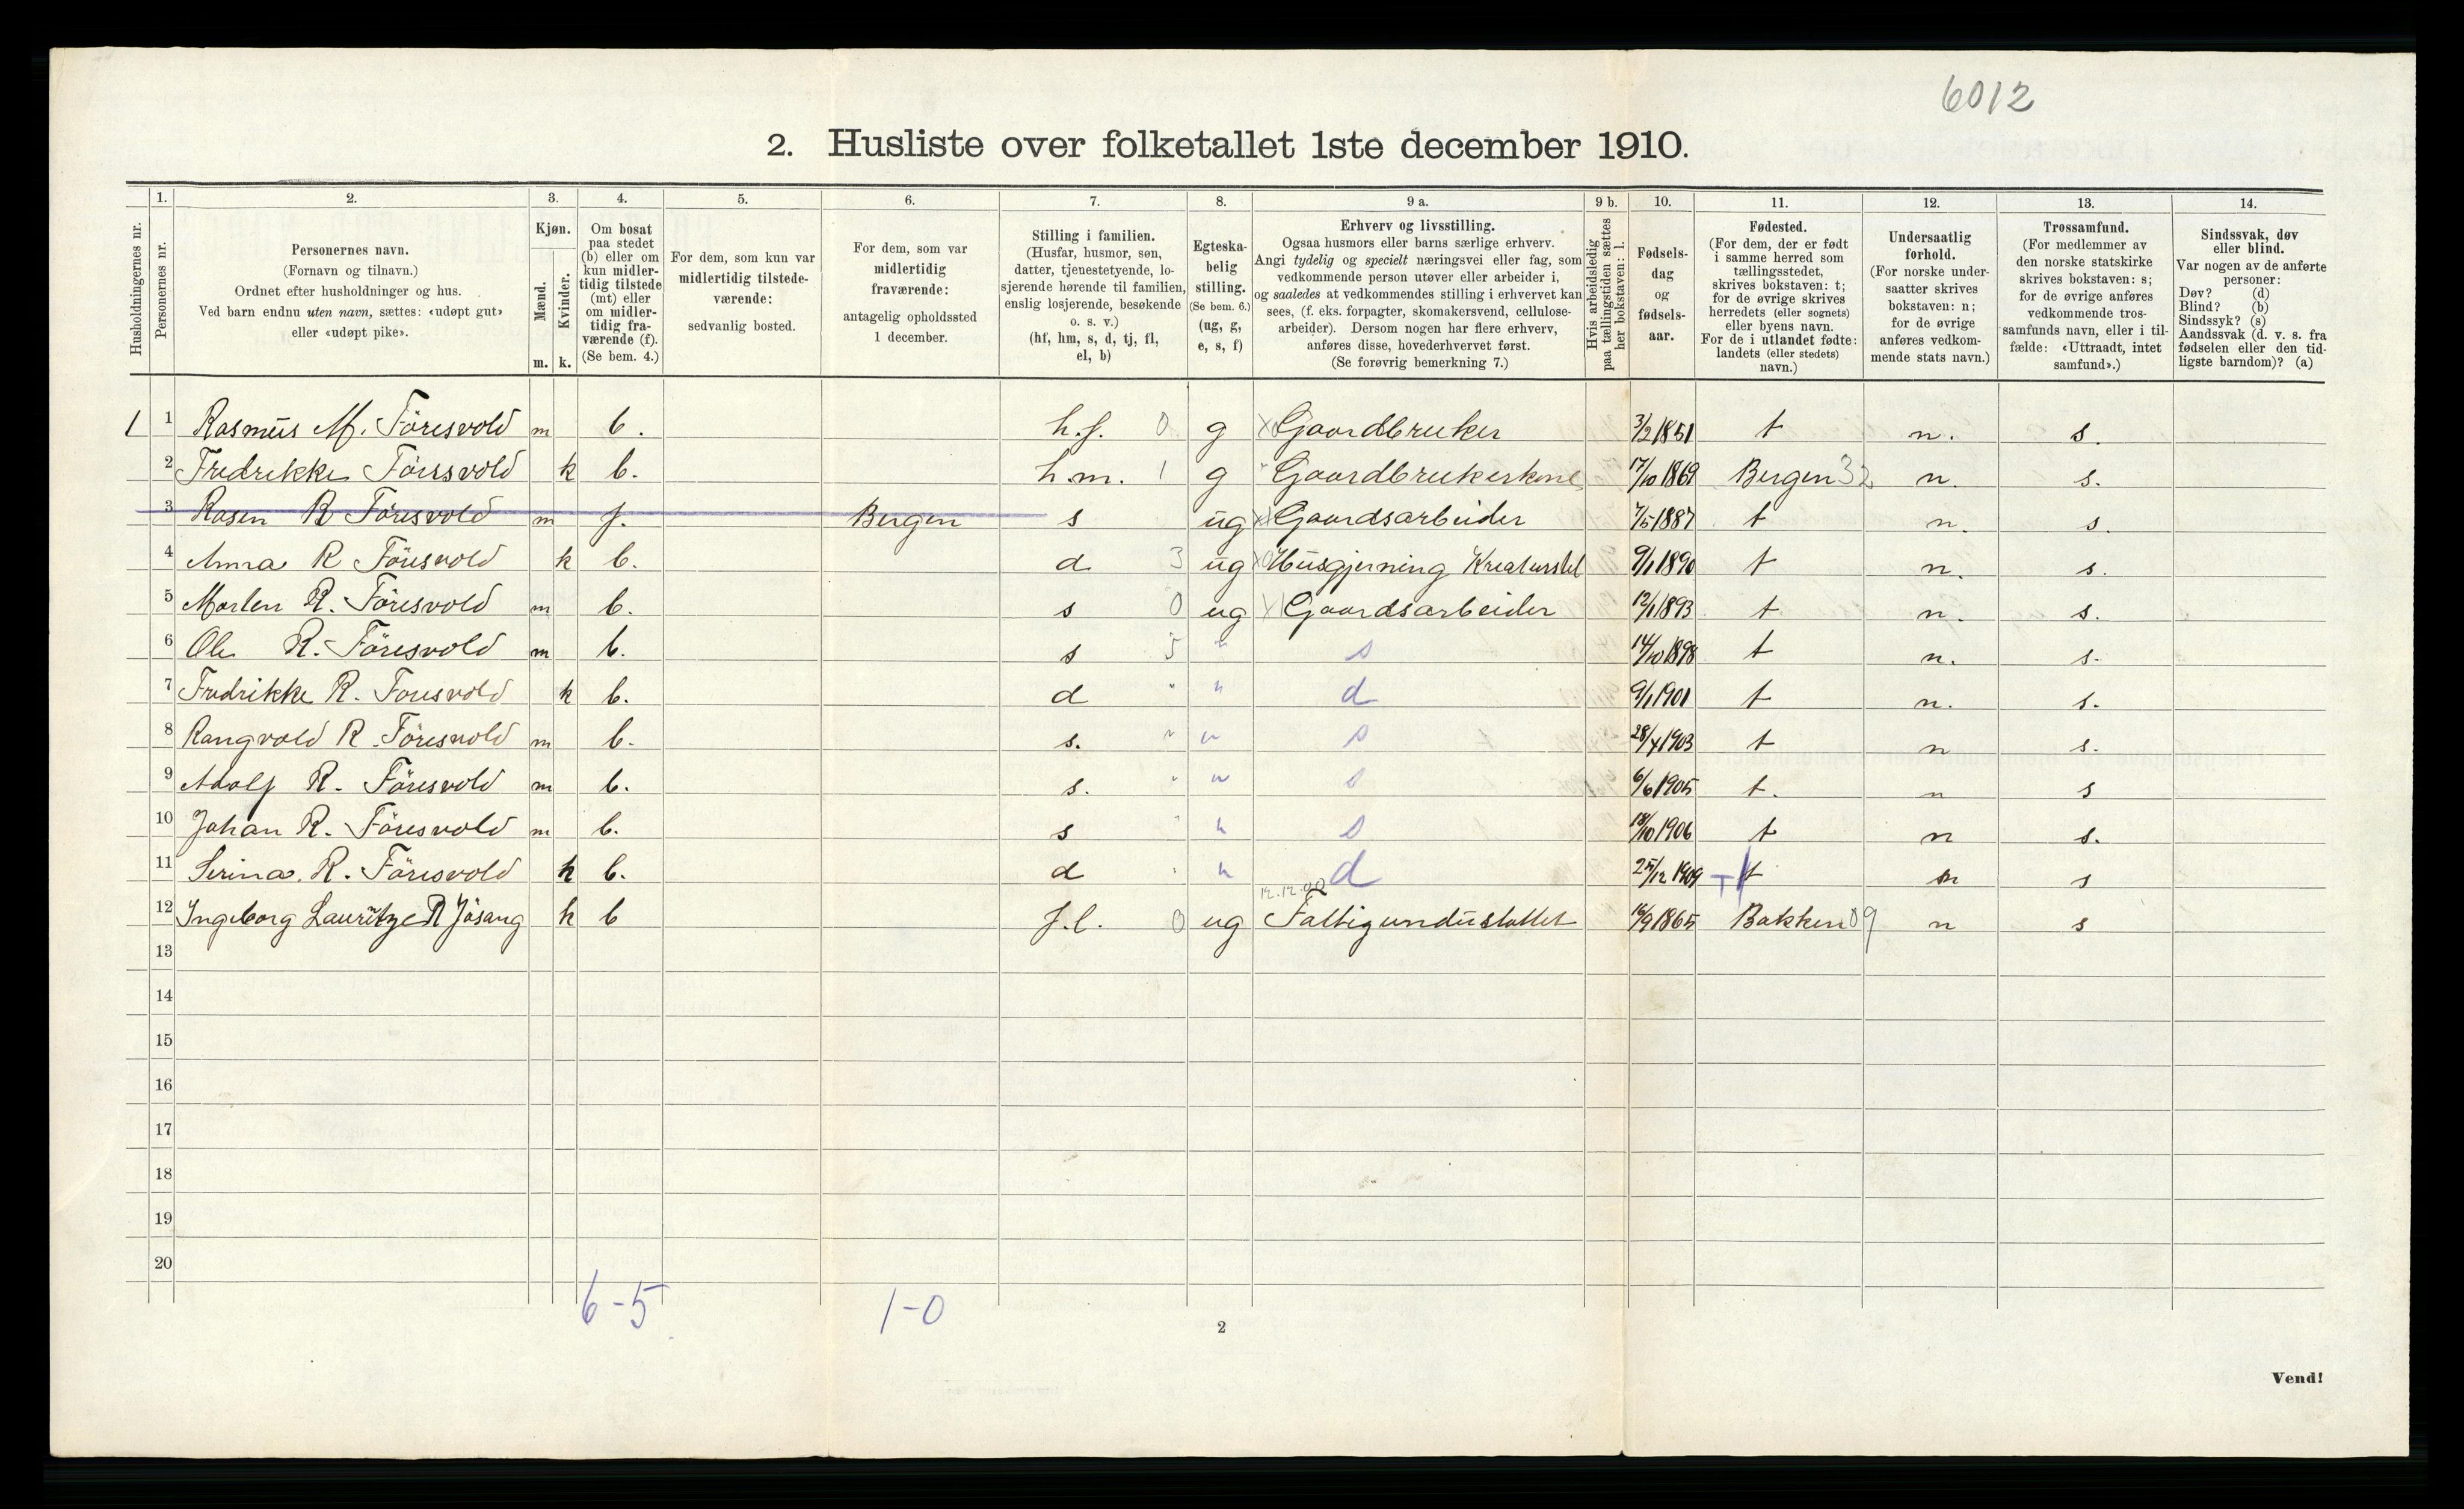 6012
2. Husliste over folketallet 1ste december 1910.
1. 2. 3. 4. 5. 6. 7. 8. 9 a. 9 b. 10. 11. 12. 13. 14.
Husholdningernes nr.
Personernes nr.
Personernes navn.
(Fornavn og tilnavn.)
Ordnet efter husholdninger og hus.
Ved barn endnu uten navn, sættes: «udøpt gut»
eller «udøpt pike».
Kjøn.
Mænd.
Kvinder.
m. k.
Om bosat
paa stedet
(b) eller om
kun midler-
tidig tilstede
(mt) eller
om midler-
tidig fra-
værende (f).
(Se bem. 4.)
For dem, som kun var
midlertidig tilstede-
værende:
sedvanlig bosted.
For dem, som var
midlertidig
fraværende:
antagelig opholdssted
1 december.
Stilling i familien.
(Husfar, husmor, søn,
datter, tjenestetyende, lo-
sjerende hørende til familien,
enslig losjerende, besøkende
o. s. v.)
(hf, hm, s, d, tj, fl,
el, b)
Egteska-
belig
stilling.
(Se bem. 6.)
(ug, g,
e, s, f)
Erhverv og livsstilling.
Ogsaa husmors eller barns særlige erhverv.
Angi tydelig og specielt næringsvei eller fag, som
vedkommende person utøver eller arbeider i,
og saaledes at vedkommendes stilling i erhvervet kan
sees, (f. eks. forpagter, skomakersvend, cellulose-
arbeider). Dersom nogen har flere erhverv,
anføres disse, hovederhvervet først.
(Se forøvrig bemerkning 7.)
Hvis arbeidsledig
paa tællingstiden sættes
her bokstaven: l.
Fødsels-
dag
og
fødsels-
aar.
Fødested.
(For dem, der er født
i samme herred som
tællingsstedet,
skrives bokstaven: t;
for de øvrige skrives
herredets (eller sognets)
eller byens navn.
For de i utlandet fødte:
landets (eller stedets)
navn.)
Undersaatlig
forhold.
(For norske under-
saatter skrives
bokstaven: n;
for de øvrige
anføres vedkom-
mende stats navn.)
Trossamfund.
(For medlemmer av
den norske statskirke
skrives bokstaven: s;
for de øvrige anføres
vedkommende tros-
samfunds navn, eller i til-
fælde: «Uttraadt, intet
samfund».)
Sindssvak, døv
eller blind.
Var nogen av de anførte
personer:
Døv? (d)
Blind? (b)
Sindssyk? (s)
Aandssvak (d. v. s. fra
fødselen eller den tid-
ligste barndom)? (a)
1 1 Rasmus M. Föresvold m b. h.f. 0 g Gaardbruker 3/2 1851 t n. s.
2 Fredrikke Föresvold k b. h.m. 1 g Gaardbrukerkone 17/10 1869 Bergen 32 n. s.
3 Rasen R Föresvold m f. Bergen s ug Gaardsarbeider 7/5 1887 t n. s.
4 Anna R Föresvold k b. d 3 ug Husgjerning Kreaturstel 9/1 1890 t n. s.
5 Morten R. Föresvold m b. s 0 ug Gaardsarbeider 12/1 1893 t n. s.
6 Ole R. Föresvold m b. s 5 " s 14/10 1898 t n. s.
7 Fredrikke R. Foresvold k b. d " " d 9/1 1901 t n. s.
8 Rangvold R. Föresvold m b. s. " " s 28/4 1903 t n s.
9 Adolf R. Föresvold m b. s. " " s 6/6 1905 t. n s
10 Johan R. Föresvold m b. s " " s 18/10 1906 t n s.
11 Serina R. Föresvold k b. d " " d 25/12 1909 t n s
12.12.00
12 Ingeborg Lauritze R Jösang k b f.l. 0 ug Fattigunderstøttet 16/9 1865 Bakken 09 n s
13
14
15
16
17
18
19
20
6-5 1-0
2
Vend!